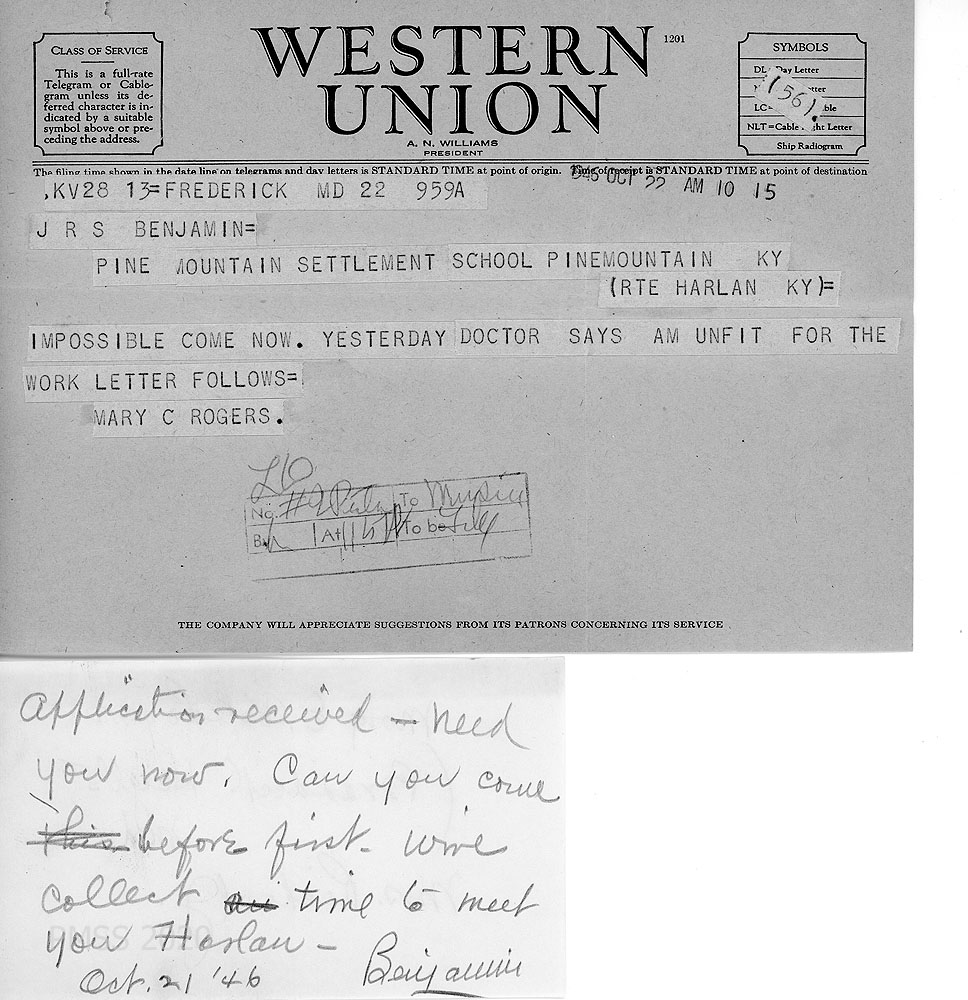 CLASS OF SERVICE
This is a full-rate
Telegram or Cable-
gram unless its de-
ferred character is in-
dicated by a suitable
symbol above or pre-
ceding the address.
WESTERN
UNION
1201
A. N. WILLIAMS
PRESIDENT
SYMBOLS
DL=Day Letter
LC=
NLT=Cable Letter
Ship Radiogram
(56).
The filing time shown in the date line on telegrams and day letters is STANDARD TIME at point of origin. Time of receipt is STANDARD TIME at point of destination
.KV28 13=FREDERICK MD 22 959A
1946 OCT 22 AM 10 15
J R S BENJAMIN=
PINE MOUNTAIN SETTLEMENT SCHOOL PINEMOUNTAIN KY
(RTE HARLAN KY)=
IMPOSSIBLE COME NOW. YESTERDAY DOCTOR SAYS AM UNFIT FOR THE
WORK LETTER FOLLOWS=
MARY C ROGERS.
No. To
By At To be
THE COMPANY WILL APPRECIATE SUGGESTIONS FROM ITS PATRONS CONCERNING ITS SERVICE
Application received – need
you now. Can you come
this before first. Wire
collect time to meet
you Harlan –
Oct. 21 '46 Benjamin